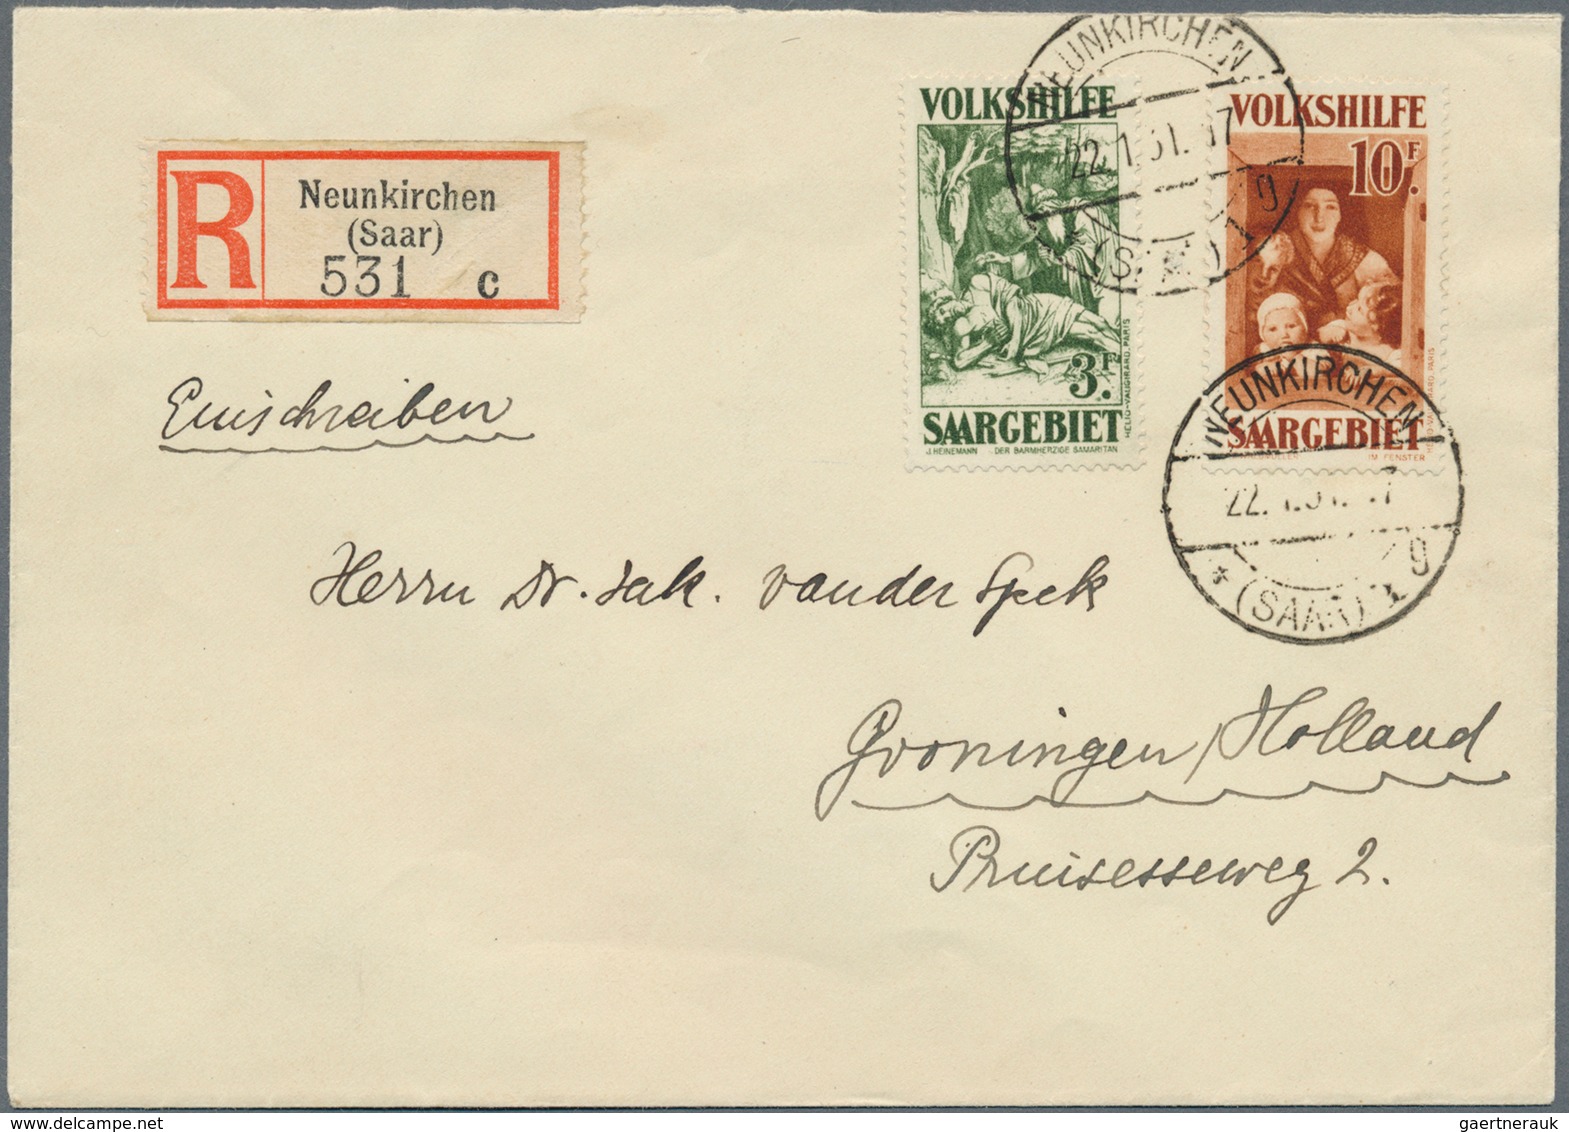 R
Neunkirchen
(Saar)
531 c
Einschreiben
VOLKSHILFE
3F.
SAARGEBIET
J. HEINEMANN - DER BARMHERZIGE SAMARITAN
HELIO-VAUGIRARD. PARIS
NEUNKIRCHEN
22.1.31. 17
g
(SAAR) 1
VOLKSHILFE
10F.
SAARGEBIET
IM FENSTER
PARIS
NEUNKIRCHEN
22.1.31. 17
* (SAAR) 1 g
Herrn Dr. Jak. van der Speck
Groningen/Holland
Pruisesseweg 2.
gaertnerauk